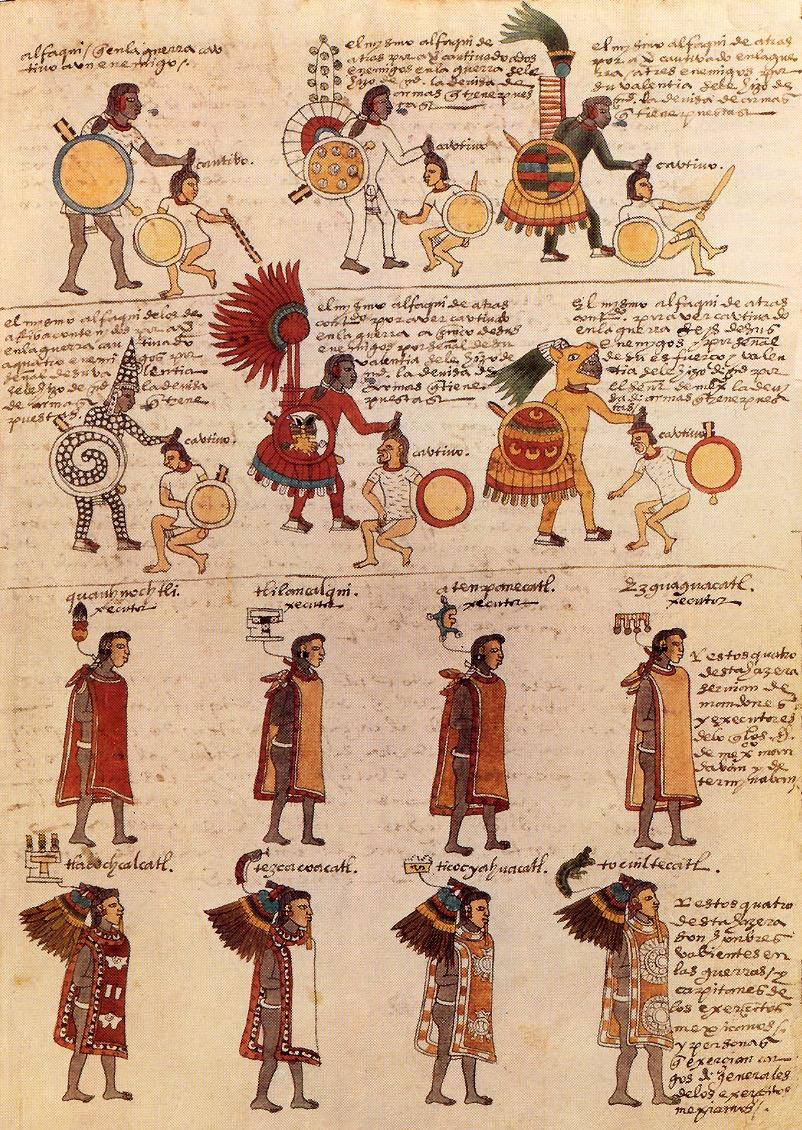 alfaqui / q̃ en la guerra cau
tivo a un enemigo /.
cautivo.
el mismo alfaqui de
atras por a q̃ cautivado dos
enemigos en la guerra dele
hizo la devisa de
armas q̃ tiene pues
tas
cautivo
el mismo alfaqui de atras
por a q̃ cautivado en la gue
rra / a tres enemigos por
su valentia dele hizo de
la devisa de armas
q̃ tiene puestas
cautivo.
el mismo alfaqui de los de
atras contenido por a q̃
en la guerra cautivado
a quatro enemigos por
señal de su valentia
se le hizo de la devisa
de armas q̃ tiene
puestas
cautivo.
el mismo alfaqui de atras
por aver cautivado
en la guerra a cinco de sus
enemigos por señal de su
valentia dele hizo de
la devisa de
armas q̃ tiene
puestas
cautivo.
El mismo alfaqui de atras
por aver cautivado
en la guerra seis de sus
enemigos y por señal
de su esfuerço / valen
tia dele hizo por
el señor de mexico la devi
sa de armas q̃ tiene pues
tas
cautivo
quauhnochtli.
xecutor
tlilancalqui.
xecutor
atenpanecatl.
xecutor
Ezguaguacatl.
xecutor
Y estos quatro
desta hazera
servian de
mandones
y executores
de lo q̃ los S.
de mex man
davan y de
terminavan
tlacochcalcatl.
tezcacoacatl.
ticocyahuacatl.
tocuiltecatl.
Y estos quatro
desta hazera
son honbres
valientes en
las guerras / y
capitanes de
los exerçitos
mexicanos /
y personas
q̃ exercian car
gos de generales
de los exerçitos
mexicanos /.